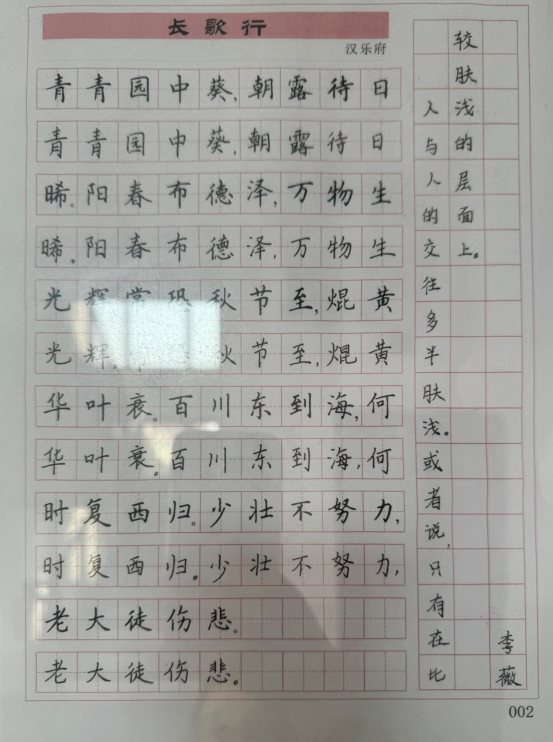 长歌行
汉乐府
青青园中葵,朝露待日
青青园中葵,朝露待日
晞。阳春布德泽,万物生
晞。阳春布德泽,万物生
光辉常恐秋节至,焜黄
光辉。秋节至,焜黄
华叶衰。百川东到海,何
华叶衰。百川东到海,何
时复西归。少壮不努力,
时复西归。少壮不努力,
老大徒伤悲。
老大徒伤悲。
人与人的交往多半肤浅。或者说,只有在比
较肤浅的层面上。
李薇
002